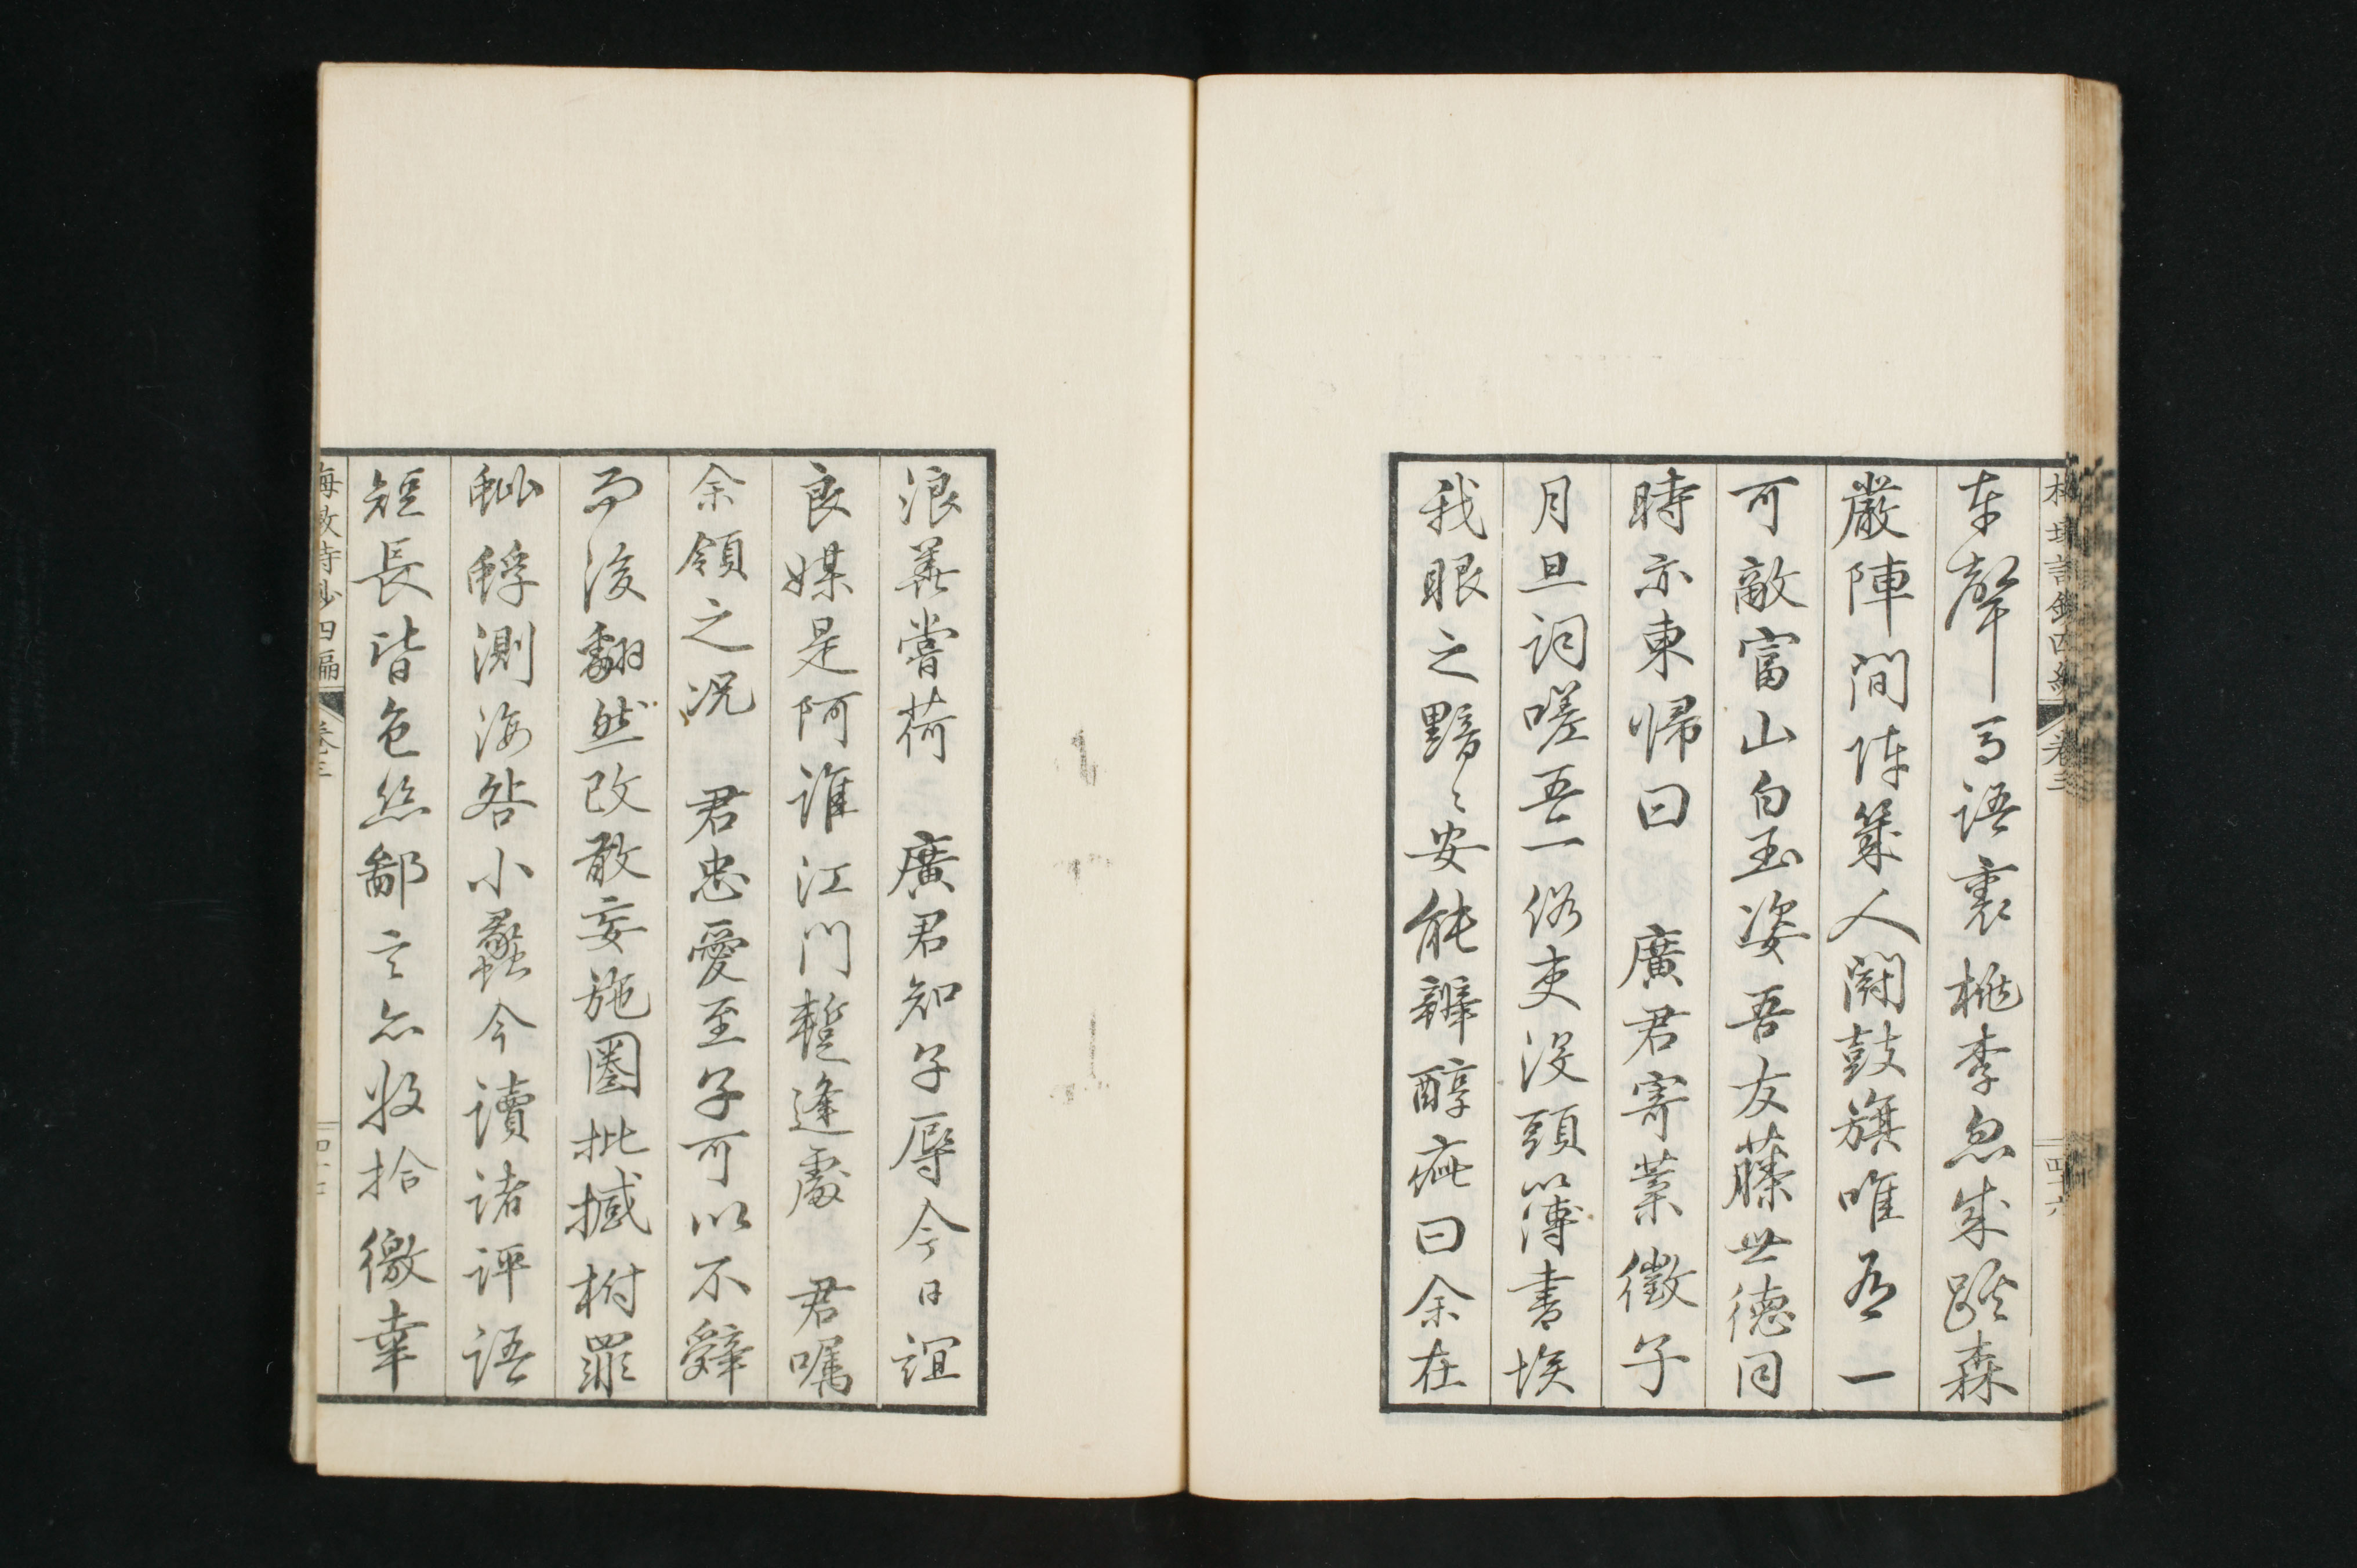 梅墩詩鈔四編 卷三 四十六
車聲馬語裏桃李忽成蹊森
嚴陣間陣幾人闘鼓旗唯有一
可敵富山白玉姿吾友藤世德同
時亦東帰曰 廣君寄藁徵予
月旦詞嗟吾一俗吏沒頭簿書埃
我眼之黯〻安能辨醇疵曰余在
浪華嘗荷 廣君知予辱今日誼
良媒是阿誰江門蹔逢處 君囑
余領之况 君忠愛至予可以不辭
而後翻然改敢妄施圈批撼樹罪
蚍蜉測海咎小蠡今讀諸評語
短長皆色絲鄙言亦收拾徼幸
梅墩詩鈔四編 卷三